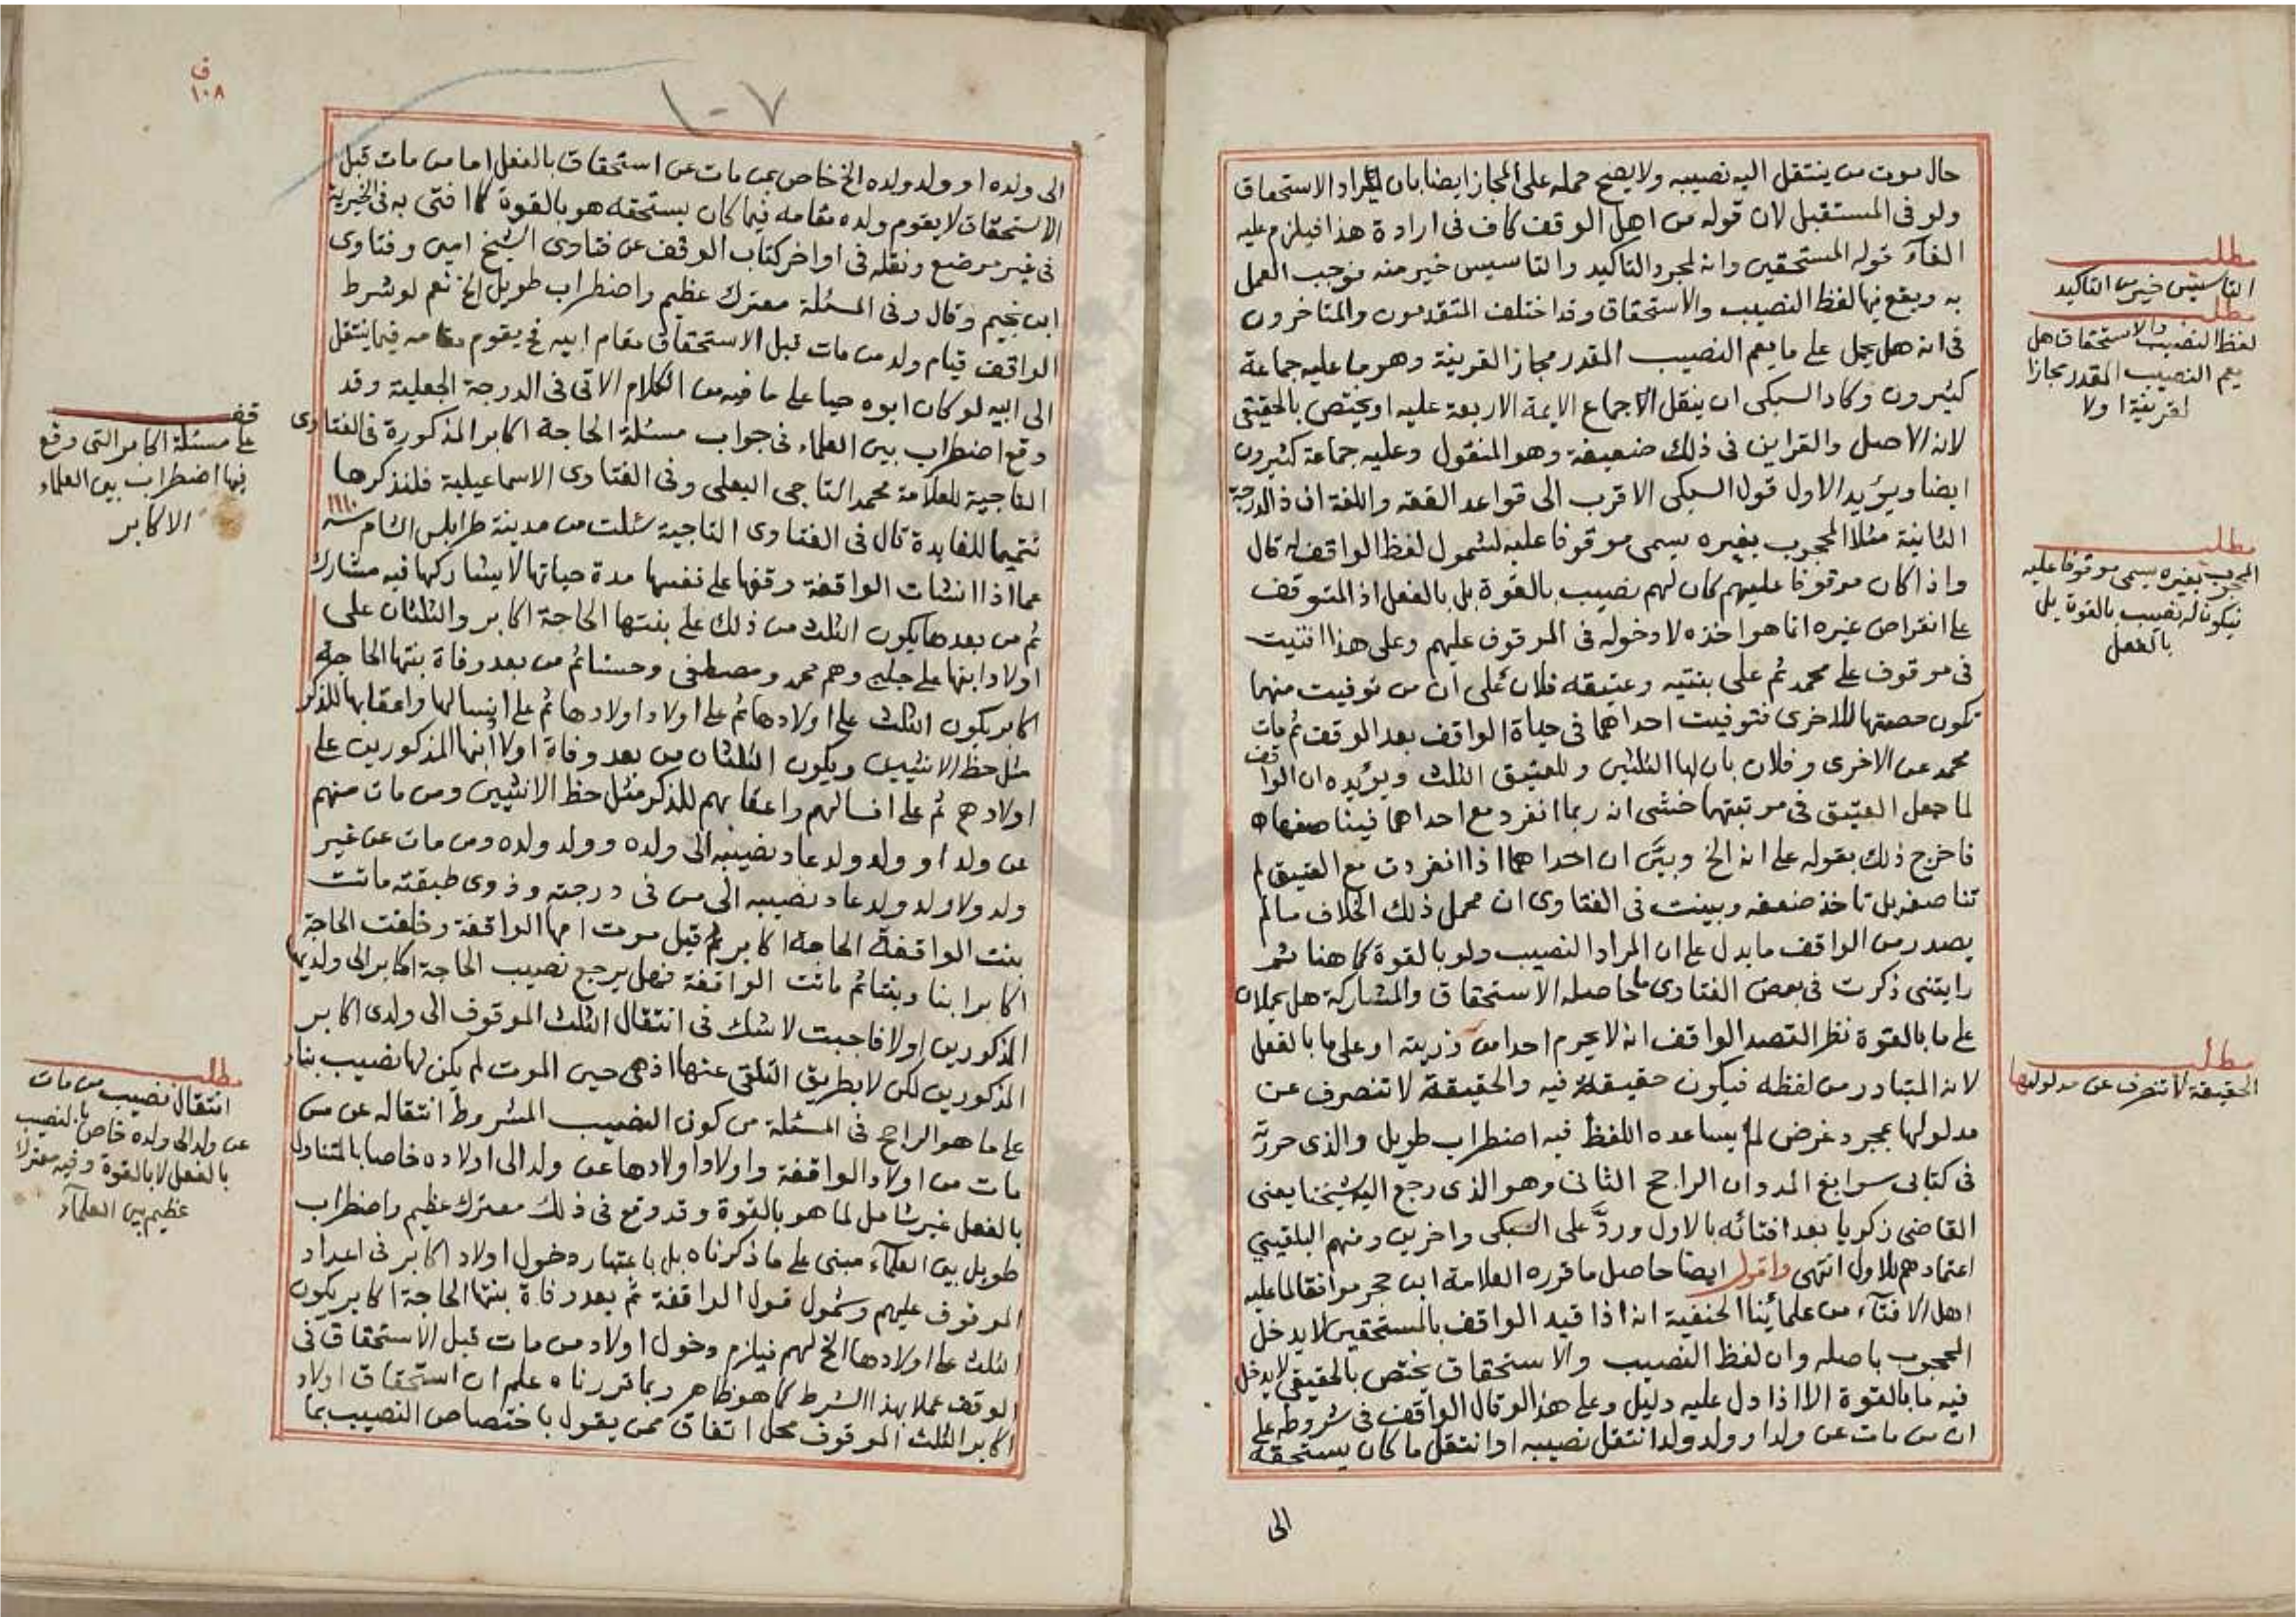 حال موت من ينتقل اليه نصيبه ولا يصح حمله على المجاز ايضا بان يراد الاستحقاق
ولو في المستقبل لان قوله من اهل الوقف كاف في ارادة هذا فيلزم عليه
الغآء قوله المستحقين وانه لمجرد التاكيد والتاسيس خير منه فوجب العمل
به ويقع فيها لفظ النصيب والاستحقاق وقد اختلف المتقدمون والمتاخرون
في انه هل يحمل على ما يعم النصيب المقدر مجاز القرينة وهو ما عليه جماعة
كثيرون وكاد السبكى ان ينقل الاجماع الايمة الاربعة عليه او يختص بالحقيقي
لانه الاصل والقراين في ذلك ضعيفة وهو المنقول وعليه جماعة كثيرون
ايضا ويؤيد الاول قول السبكى الاقرب الى قواعد الفقه واللغة ان ذا الدرجة
الثانية مثلا المحجوب بغيره يسمى موقوفا عليه لشمول لفظ الواقف له قال
واذا كان موقوفا عليهم كان لهم نصيب بالقوة بل بالفعل اذ المتوقف
على انقراض غيره انما هو اخذه لا دخوله في الموقوف عليهم وعلى هذا افتيت
في موقوف على محمد ثم على بنتيه وعتيقه فلان على ان من توفيت منهما
تكون حصتها للاخرى فتوفيت احداهما في حياة الواقف بعد الوقف ثم مات
محمد عن الاخرى وفلان بان لها الثلثين وللعتيق الثلث ويؤيده ان الواقف
لما جعل العتيق في مرتبتهما خشى انه ربما انفرد مع احداهما فيناصفها
فاخرج ذلك بقوله على انه الخ وبيَّن ان احداهما اذا انفردت مع العتيق لم
تناصفه بل تاخذ ضعفه وبينت في الفتاوى ان محمل ذلك الخلاف ما لم
يصدر من الواقف ما يدل على ان المراد النصيب ولو بالقوة كما هنا ثم
رايتنى ذكرت في بعض الفتاوى ما حاصله الاستحقاق والمشاركة هل يحملان
على ما بالقوة نظر القصد الواقف انه لا يحرم احدا من ذريته او على ما بالفعل
لانه المتبادر من لفظه فيكون حقيقة فيه والحقيقة لا تنصرف عن
مدلولها بمجرد غرض لم يساعده اللفظ فيه اضطراب طويل والذى حررته
في كتابى سوابغ المدد ان الراجح الثانى وهو الذى رجع اليه شيخنا يعنى
القاضى زكريا بعد افتائه بالاول وردَّ على السبكى واخرين ومنهم البلقيني
اعتمادهم للاول انتهى واقول ايضا حاصل ما قرره العلامة ابن حجر موافقا لما عليه
اهل الافتآء من علمائنا الحنفية انه اذا قيد الواقف بالمستحقين لا يدخل
المحجوب باصله وان لفظ النصيب والاستحقاق يختص بالحقيقي لا يدخل
فيه ما بالقوة الا اذا دل عليه دليل وعلى هذا لو قال الواقف في شروطه على
ان من مات عن ولد او ولد ولد انتقل نصيبه او انتقل ما كان يستحقه
الى
مطلب
التاسيس خير من التاكيد
مطلب
لفظ النصيب والاستحقاق هل
يعم النصيب المقدر مجازا
لقرينة او لا
مطلب
المحجوب بغيره يسمى موقوفا عليه
فيكون له نصيب بالقوة بل
بالفعل
مطلب
الحقيقة لا تنصرف عن مدلولها
ف
١٠٨
١٠٧
الى ولده او ولد ولده الخ خاص بمن مات عن استحقاق بالفعل اما من مات قبل
الاستحقاق لا يقوم ولده مقامه فيما كان يستحقه هو بالقوة كما افتى به في الخيرية
في غير موضع ونقله في اواخر كتاب الوقف عن فتاوى الشيخ امين وفتاوى
ابن نجيم وقال وفي المسئلة معترك عظيم واضطراب طويل الخ نعم لو شرط
الواقف قيام ولد من مات قبل الاستحقاق مقام ابيه فح يقوم مقامه فيما ينتقل
الى ابيه لو كان ابوه حيا على ما فيه من الكلام الاتى في الدرجة الجعلية وقد
وقع اضطراب بين العلماء في جواب مسئلة الحاجة اكابر المذكورة في الفتاوى
التاجية للعلامة محمد التاجى البعلى وفي الفتاوى الاسماعيلية فلنذكرها
تتميما للفايدة قال في الفتاوى التاجية سئلت من مدينة طرابلس الشام سنه ١١١٠
عما اذا انشات الواقفة وقفها على نفسها مدة حياتها لا يشاركها فيه مشارك
ثم من بعدها يكون الثلث من ذلك على بنتها الحاجة اكابر والثلثان على
اولاد ابنها على جلبي وهم محمد ومصطفى وحسنا ثم من بعد وفاة بنتها الحاجة
اكابر يكون الثلث على اولادها ثم على اولاد اولادها ثم على انسالها واعقابها للذكر
مثل حظ الانثيين ويكون الثلثان من بعد وفاة اولاد ابنها المذكورين على
اولادهم ثم على انسالهم واعقابهم للذكر مثل حظ الانثيين ومن مات منهم
عن ولد او ولد ولد عاد نصيبه الى ولده وولد ولده ومن مات عن غير
ولد ولا ولد ولد عاد نصيبه الى من في درجته وذوى طبقته ماتت
بنت الواقفة الحاجة اكابر قبل موت امها الواقفة وخلفت الحاجة
اكابر ابنا وبنتا ثم ماتت الواقفة فهل يرجع نصيب الحاجة اكابر الى ولديها
المذكورين او لا فاجبت لا شك في انتقال الثلث الموقوف الى ولدى اكابر
المذكورين لكن لا بطريق التلقى عنها اذ هى حين الموت لم يكن لها نصيب بناء
على ما هو الراجح في المسئلة من كون النصيب المشروط انتقاله عن من
مات من اولاد الواقفة واولاد اولادها عن ولد الى اولاده خاصا بالمتناول
بالفعل غير شامل لما هو بالقوة وقد وقع في ذلك معترك عظيم واضطراب
طويل بين العلمآء مبنى على ما ذكرناه بل باعتبار دخول اولاد اكابر في اعداد
الموقوف عليهم وشمول قول الواقفة ثم بعد وفاة بنتها الحاجة اكابر يكون
الثلث على اولادها الخ لهم فيلزم دخول اولاد من مات قبل الاستحقاق في
الوقف عملا بهذا الشرط كما هو ظاهر وبما قررناه علم ان استحقاق اولاد
اكابر الثلث الموقوف محل اتفاق ممن يقول باختصاص النصيب بما
قف
على مسئلة اكابر التى وقع
فيها اضطراب بين العلماء
الاكابر
مطلب
انتقال نصيب من مات
عن ولد الى ولده خاص بالنصيب
بالفعل لا بالقوة وفيه معترك
عظيم بين العلمآء